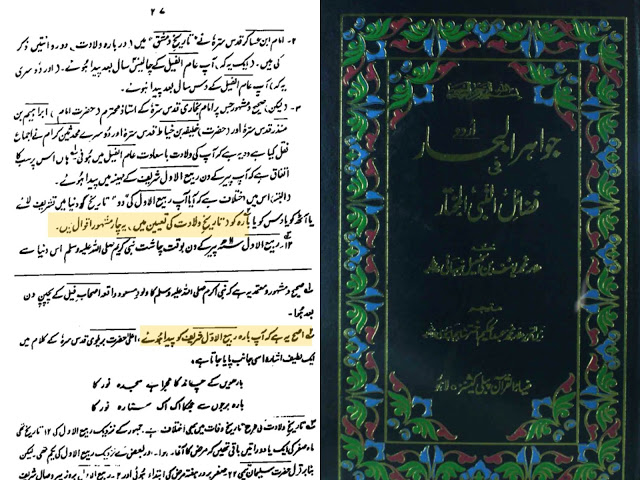 ۲۷
۲۔ امام ابن عساکر قدس سرہٗ نے "تاریخ دمشق" میں ۱ دربارہ ولادت، دو روائتیں ذکر
کی ہیں۔ (ایک یہ کہ، آپ عام الفیل کے چالیس سال بعد پیدا ہوئے۔ (اور دوسری
یہ کہ) آپ عام الفیل کے دس سال بعد پیدا ہوئے۔
۳۔ (لیکن، صحیح ومشہور جس پر امام بخاری قدس سرہٗ کے استاذ محترم (حضرت امام) ابراہیم بن
منذر قدس سرہٗ اور (حضرت، خلیفہ بن خیاط قدس سرہٗ اور دوسرے محدثین کرام نے اجماع
نقل کیا ہے وہ یہ ہے کہ آپ کی ولادت باسعادت عام الفیل میں ہوئی ہاں اس پر سب کا
اتفاق ہے کہ آپ پیر کے دن ربیع الاول شریف کے مہینہ میں پیدا ہوئے۔
(البتہ، اس میں اختلاف ہے کہ آیا آپ ربیع الاول کی "دو" تاریخ کو دنیا میں تشریف لائے
یا آٹھ کو یا دس کو یا بارہ کو (تاریخ ولادت کی تعیین میں، یہ چار مشہور اقوال ہیں۔
۱۲ ربیع الاول پیر کے دن بوقت چاشت نبی کریم صلی اللہ علیہ وسلم اس دنیا سے
صحیح ومشہور ومعتمد یہ ہے کہ نبی اکرم صلی اللہ علیہ وسلم کا مولود مسعود واقعہ اصحاب فیل کے پچپن دن
بعد ہوا۔
اصح یہ ہے کہ آپ بارہ ربیع الاول شریف کو پیدا ہوئے، اعلیٰ حضرت بریلوی قدس سرہٗ کے کلام میں
ایک لطیف اشارہ اسی جانب پایا جاتا ہے۔
بارھویں کے چاند کا مجرا ہے سجدہ نور کا
بارہ برجوں سے جھکا اک اک ستارہ نور کا
تاریخ ولادت کی طرح تاریخ وفات میں بھی اختلاف ہے۔ جمہور کے نزدیک ربیع الاول کی ۱۲ تاریخ تھی
ماہ صفر کی ایک یا دو راتیں باقی تھیں کہ مرض کا آغاز ہوا۔ اور بعض کے نزدیک ربیع الاول کی یکم تھی۔ لیکن
بنا بر قول حضرت سلیمان تیمی ۲۲ صفر بروز ہفتہ مرض کی ابتداء ہوئی اور ۲ ربیع الاول بروز پیر وصال شریف
اردو
جواہر البحار
فی
فضائل النبی المختار
علامہ محمد یوسف بن اسمٰعیل نبہانی
مترجم
ضیاء القرآن پبلی کیشنز، لاہور